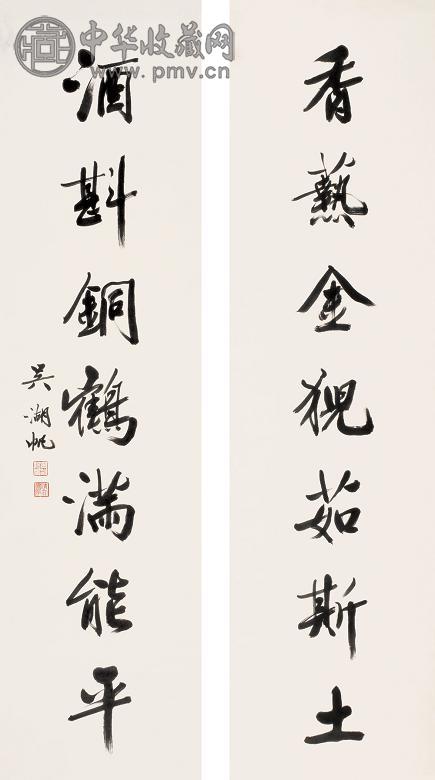 中华收藏网
www.pmv.cn
香爇金猊茹斯土
酒斟銅鶴滿能平
吳湖帆